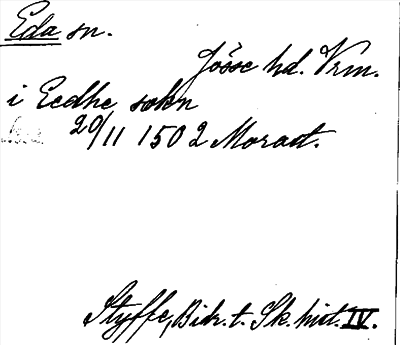 Eda sn.
Jösse hd. Vrm.
i Eedhe sokn
20/11 1502 Morast.
Styffe, Bidr. t. Sk. hist. IV.